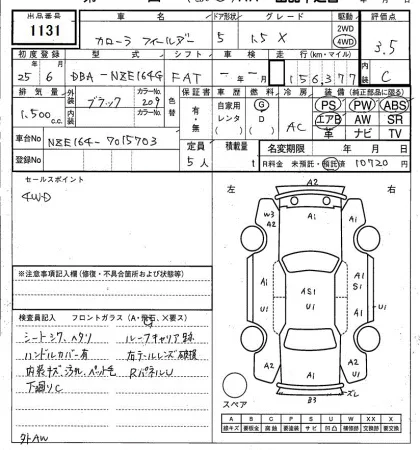 出品番号 車名 ドア形状 グレード 駆動 評価点
1131 カローラ フィールダー 5 1.5X 2WD 4WD 3.5
初度登録 型式 シフト 車検 走行(km・マイル) 内装
25年 6月 DBA-NZE164G FAT 年 月 156,377 C
排気量 外装 ブラック カラーNo. 209 色替 保証書 車歴 燃料 冷房 装備(純正部品に限る)
1,500 c.c. 内装 カラーNo. 有・無 自家用 レンタ G D AC PS PW ABS
エアB AW SR
革 ナビ TV
車台No NZE164-7015703 定員 積載量 名変期限 年 月 日
登録No 5人 t R料金 未預託・預託済 10720円
セールスポイント
4WD
左 右
A2
W3 A2 A1
A1 A1
U1 AS1 A1 S1 U1
U1
A2 A2
B3
スペア
※注意事項記入欄(修復・不具合箇所および状態等)
検査員記入 フロントガラス(A・飛石、X要ス)
シートシワ、ヘタリ ルーフキャリア跡
ハンドルカバー有 右テールレンズ破損
内装キズ、汚れ、ペット毛 RパネルU
下廻りC
外AW
A B C P S U W XX X
線キズ 要板金 腐蝕 要塗装 サビ 凹凸 補修跡 交換跡 要交換